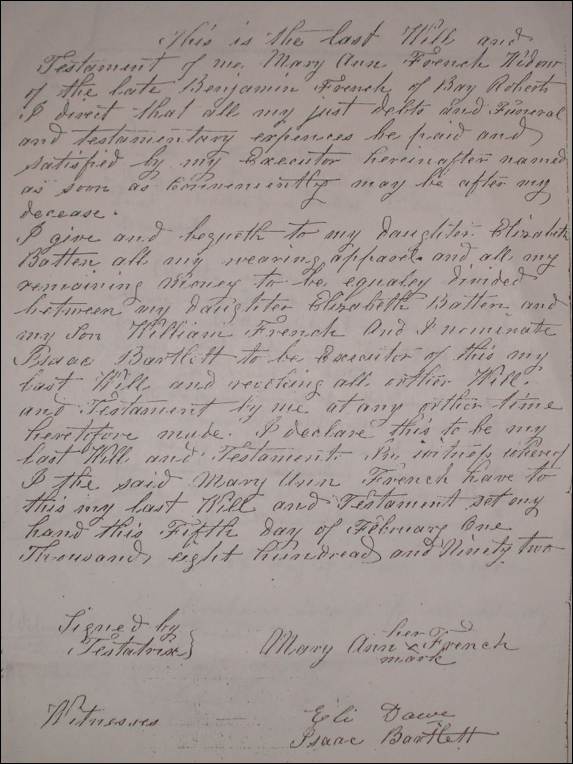 This is the last Will and
Testament of me Mary Ann French Widow
of the late Benjamin French of Bay Roberts
I direct that all my just debts and Funeral
and testamentary expences be paid and
satisfied by my Executor hereinafter named
as soon as conveniently may be after my
decease.
I give and bequeth to my daughter Elizabeth
Batten all my wearing apparel and all my
remaining money to be equaley divided
between my daughter Elizabeth Batten and
my Son William French And I nominate
Isaac Bartlett to be Executor of this my
last Will and revoking all other Will
and Testament by me at any other time
heretofore made. I declare this to be my
last Will and Testament. In witness whereof
I the said Mary Ann French have to
this my last Will and Testament set my
hand this Fifth Day of February One
Thousand eight hundread and Ninety two
Signed by
Testatrix}
her
Mary Ann x French
mark
Witnesses
Eli Dawe
Isaac Bartlett